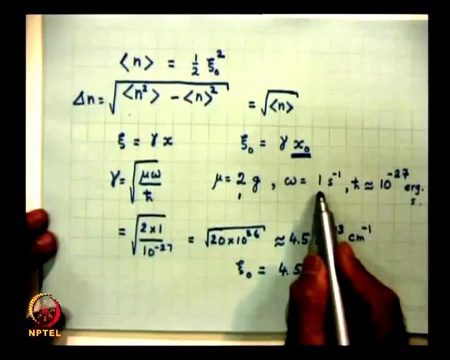 ⟨n⟩ = 1/2 ξ₀²
Δn = √(⟨n²⟩ − ⟨n⟩²) = √⟨n⟩
ξ = γx ξ₀ = γ x₀
γ = √(μω/ħ) μ = 2 g, ω = 1 s⁻¹, ħ ≈ 10⁻²⁷ erg. s.
= √(2×1/10⁻²⁷) = √(20×10²⁶) ≈ 4.5 cm⁻¹
ξ₀ = 4.5
NPTEL